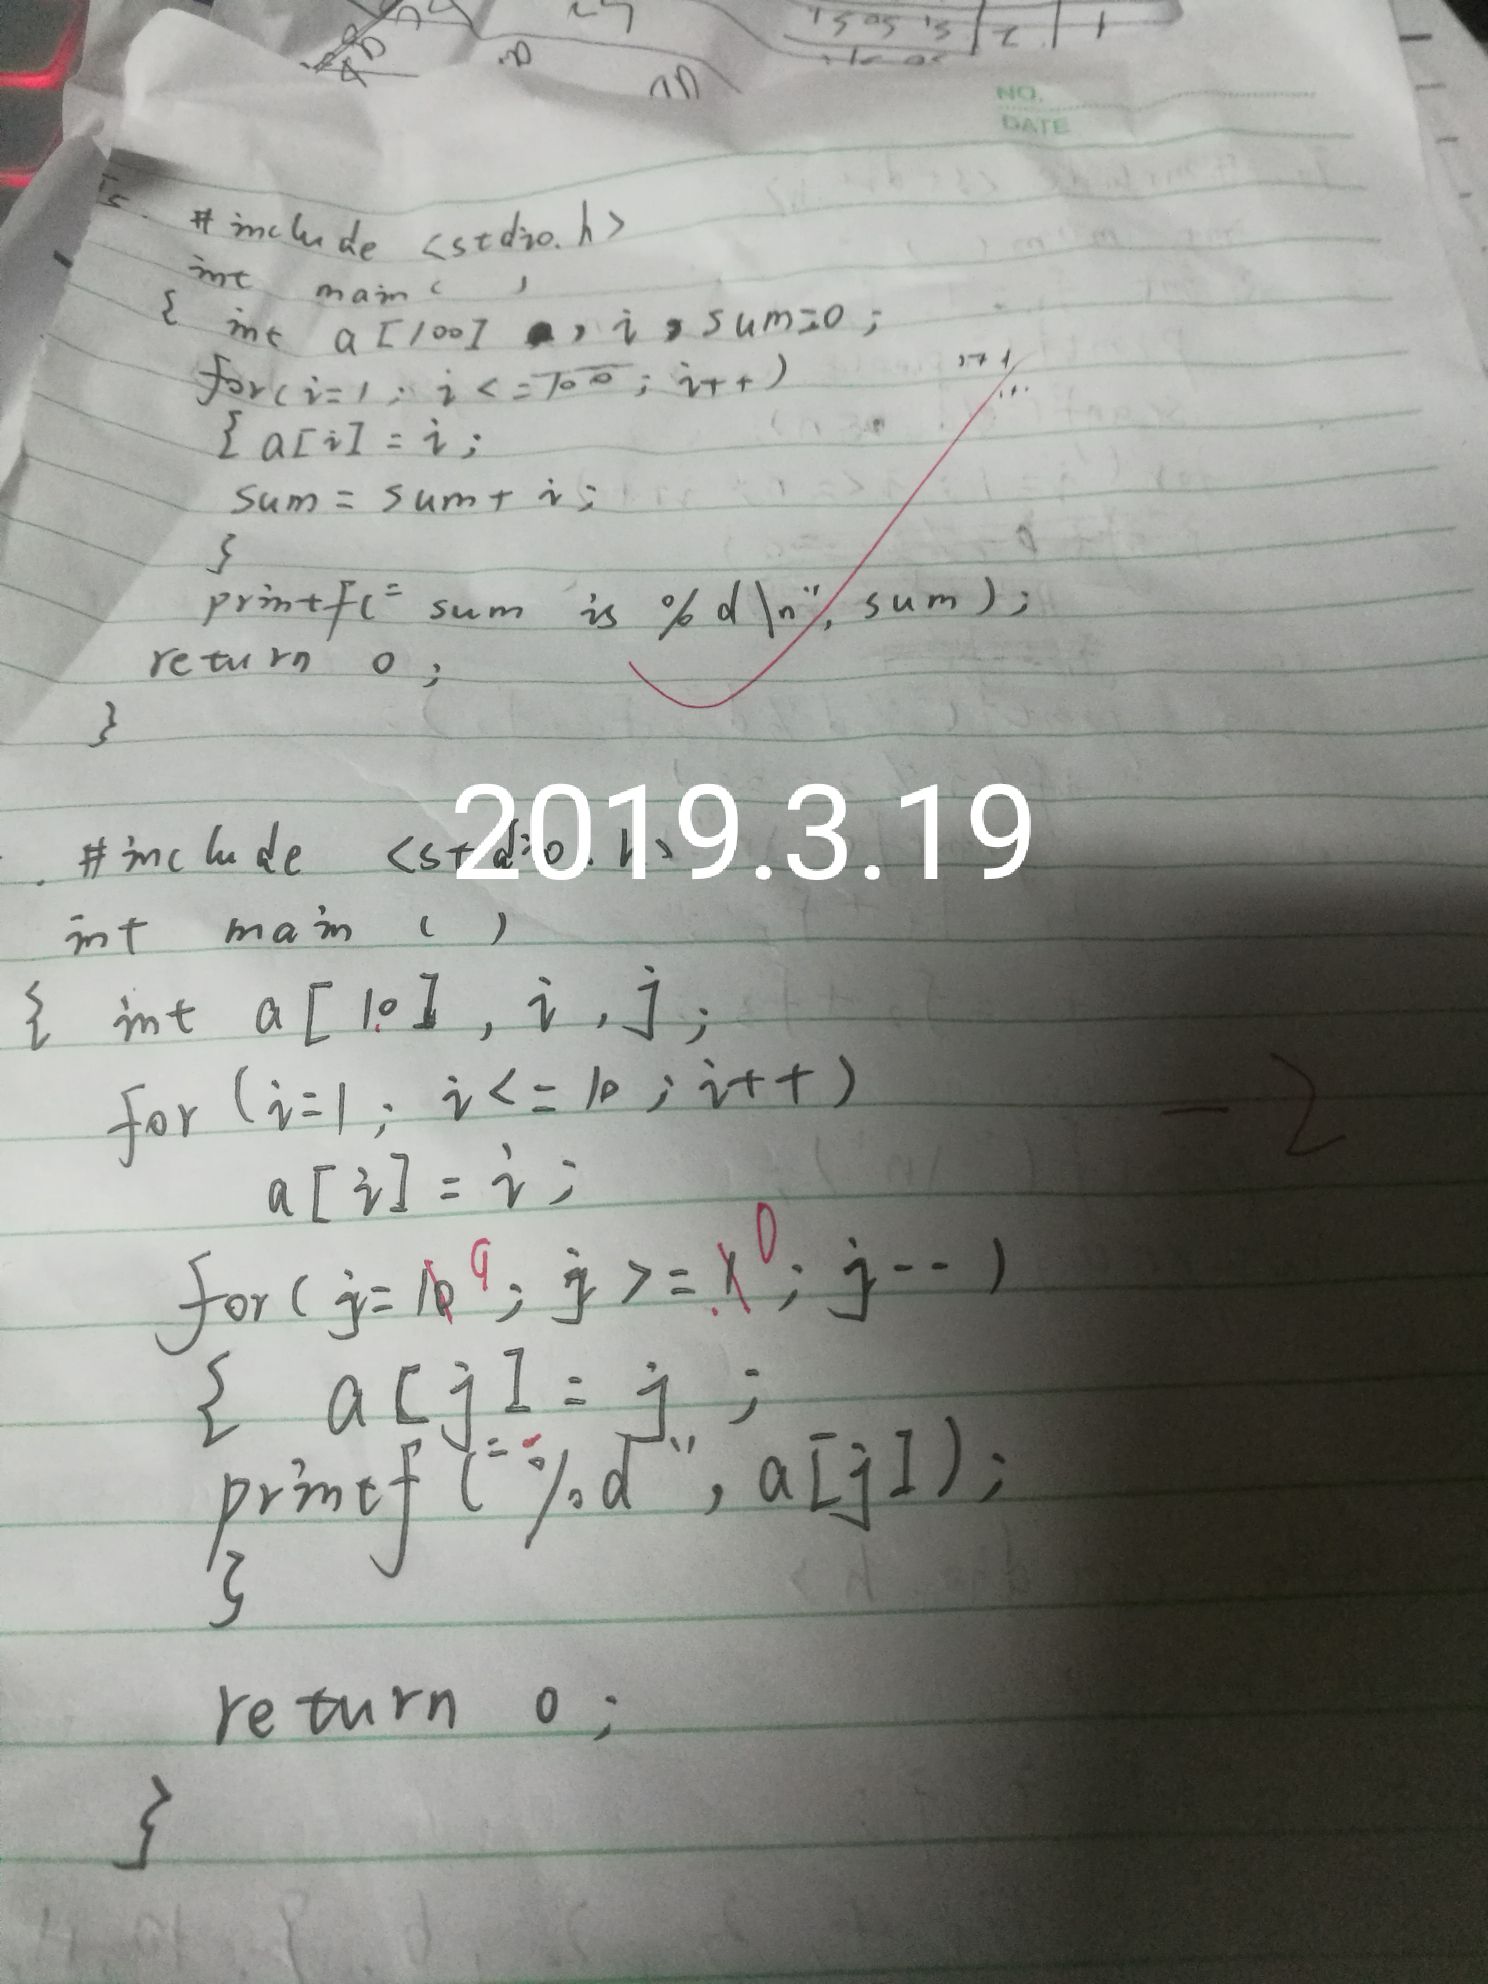 NO.
DATE
5. #include <stdio.h>
int main( )
{ int a[100] , i , sum=0 ;
for(i=1; i<=100; i++)
{ a[i] = i ;
sum = sum + i ;
}
printf(" sum is %d\n", sum);
return 0 ;
}
#include <stdio.h>
2019.3.19
int main ( )
{ int a[10], i , j ;
for (i=1; i<=10; i++)
-2
a[i] = i ;
for( j=10 9; j>=1 0; j-- )
{ a[j] = j ;
printf("%d", a[j]);
}
return 0 ;
}